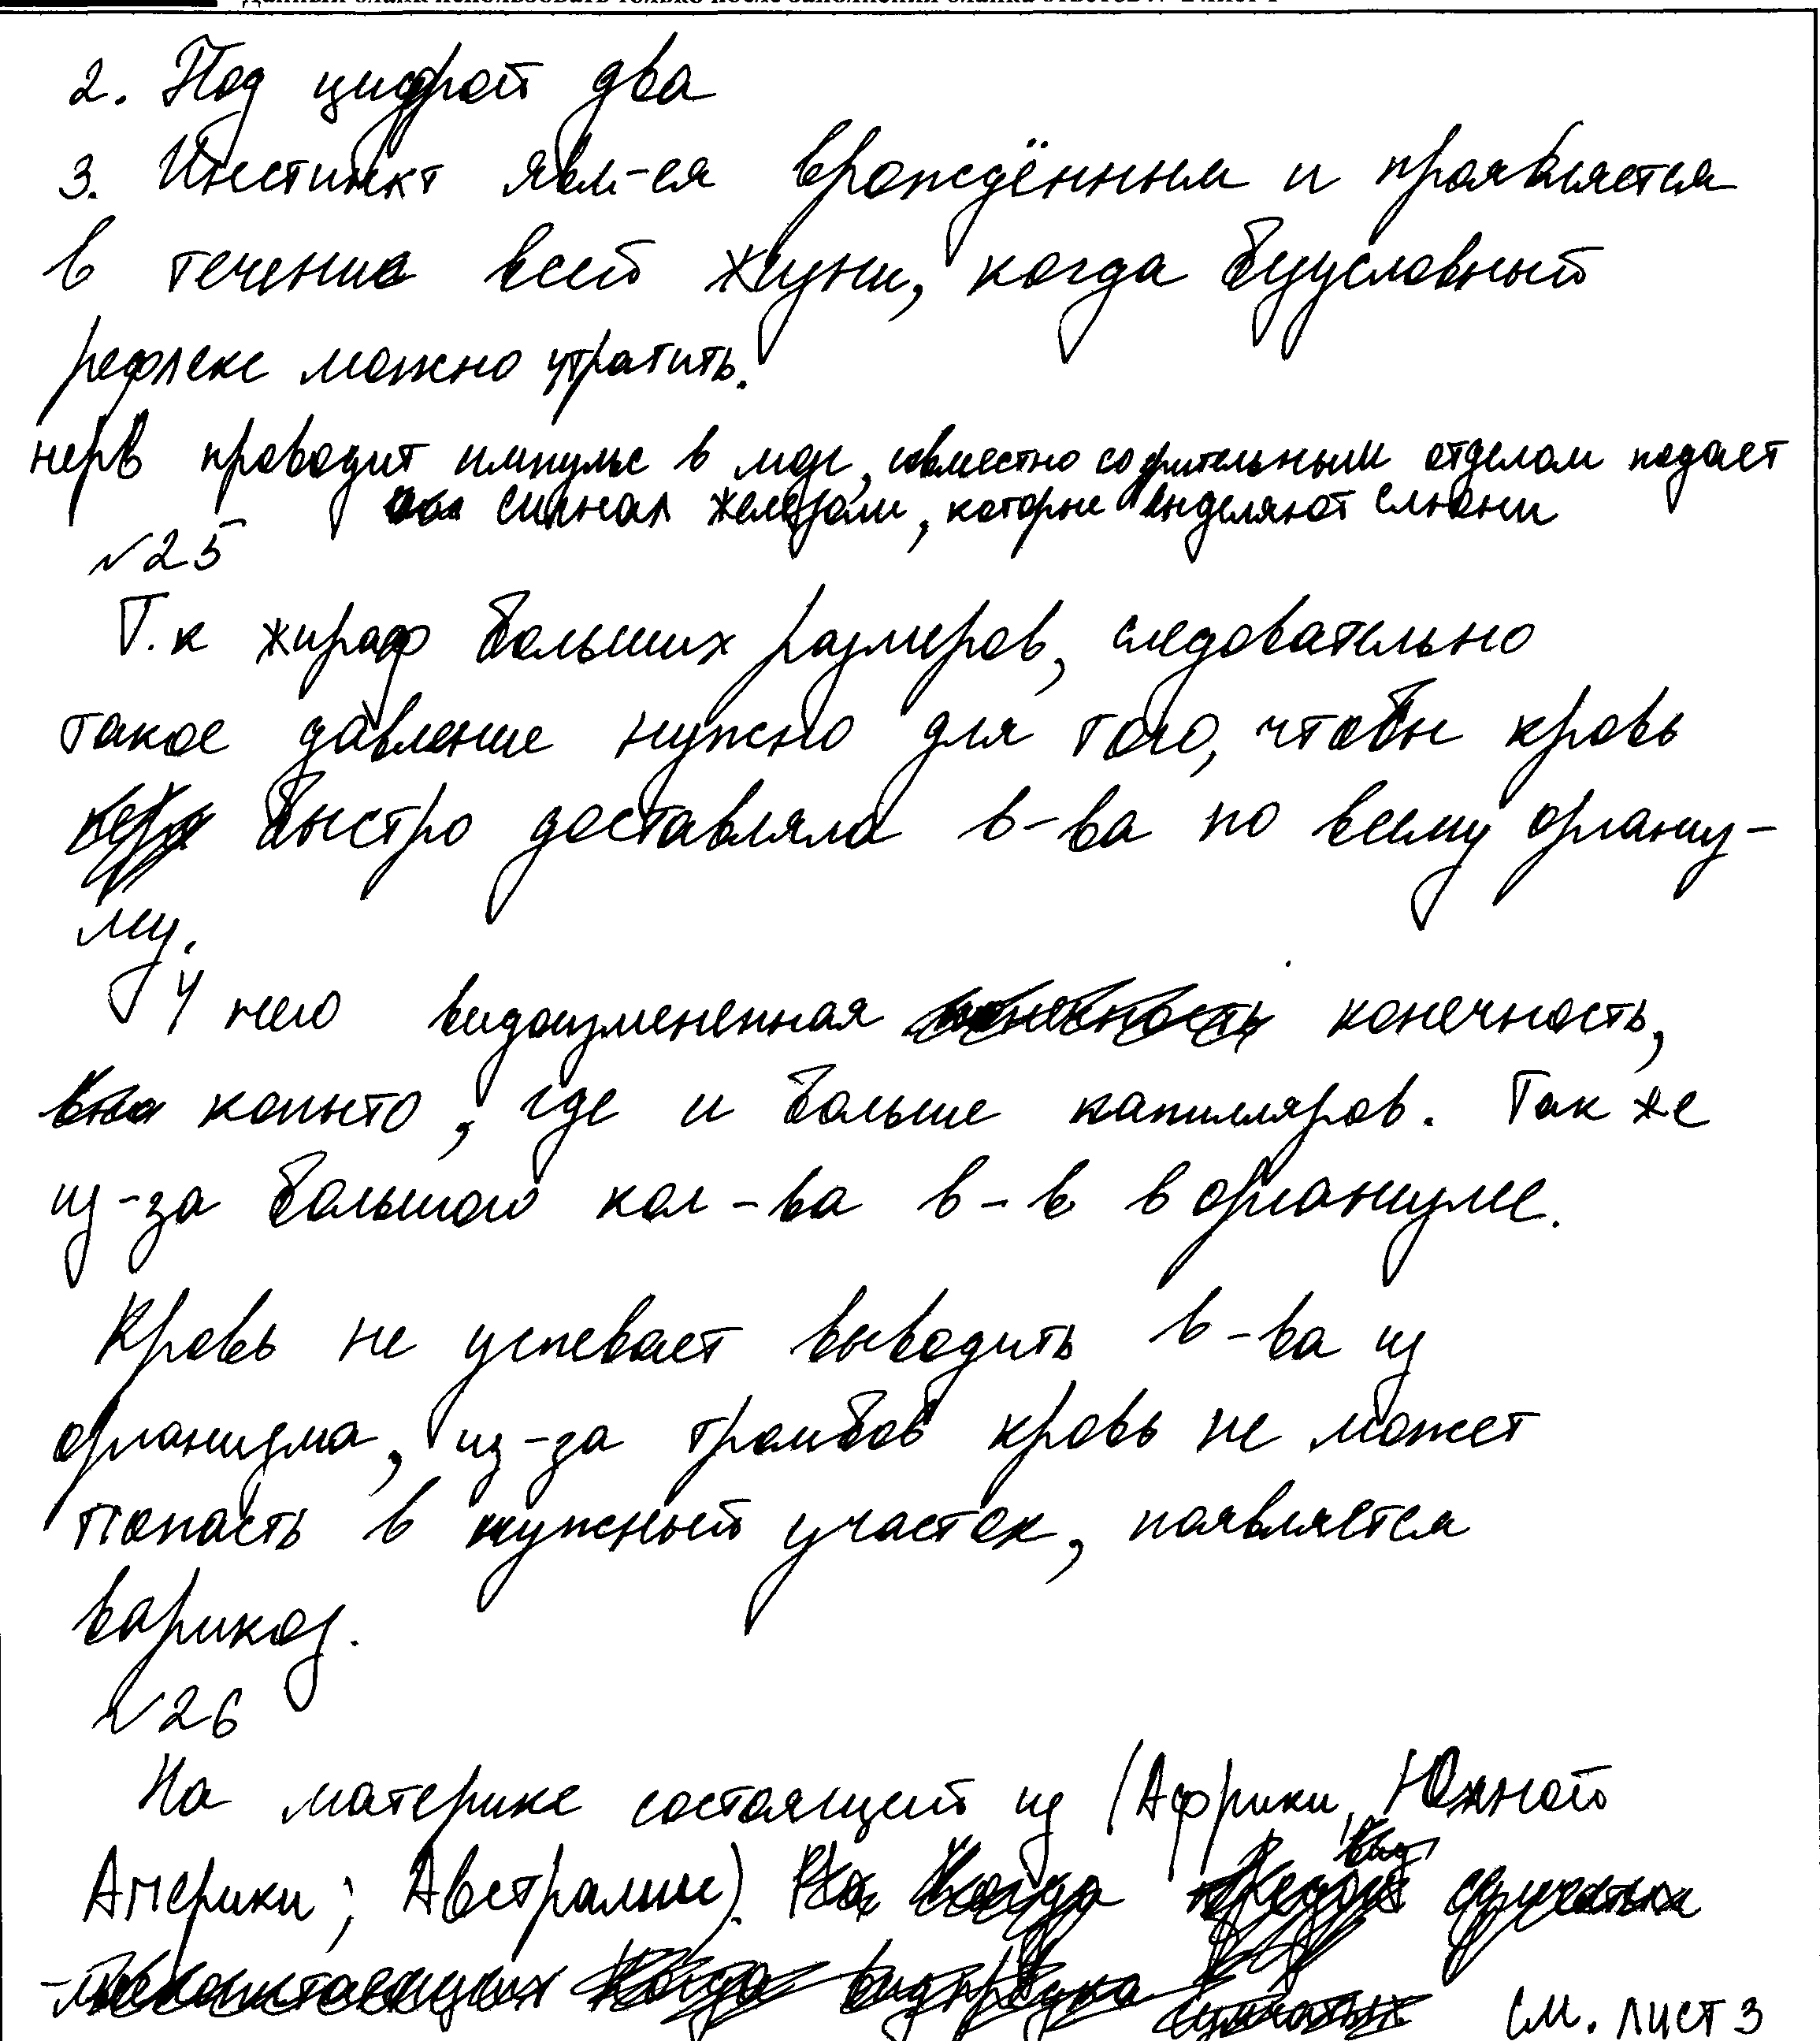 2. Под цифрой два
3. Инстинкт явл-ся врождённым и проявляется
в течение всей жизни, когда безусловный
рефлекс можно утратить.
нерв проводит импульс в мозг, совместно со зрительным отделом подает
сигнал железам, которые выделяют слюни
№25
Т.к жираф больших размеров, следовательно
такое давление нужно для того, чтобы кровь
быстро доставляла в-ва по всему организ-
му.
У него видоизмененная конечность,
копыто, где и больше капилляров. Так же
из-за большого кол-ва в-в в организме.
Кровь не успевает выводить в-ва из
организма, из-за тромбов кровь не может
попасть в нужный участок, появляется
варикоз.
№26
На материке состоящей из (Африки, Южной
Америки; Австралии).
см. лист 3